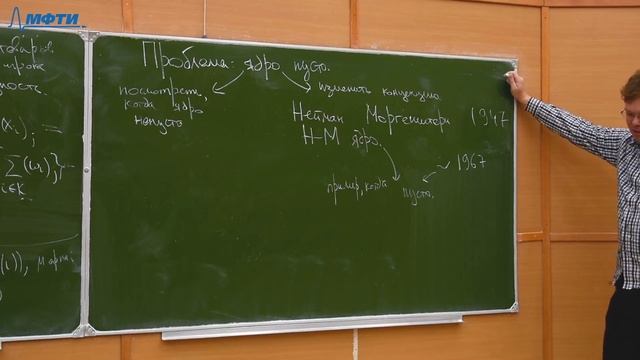 МФТИ
товаров.
(x_i); =
Σ(ω_i)};
i∈K
(i)),
Проблема: ядро пусто.
посмотреть,
когда ядро
непусто
изменить концепцию
Нейман Моргенштерн 1947
Н-М ядро.
~ 1967
пример, когда пусто.